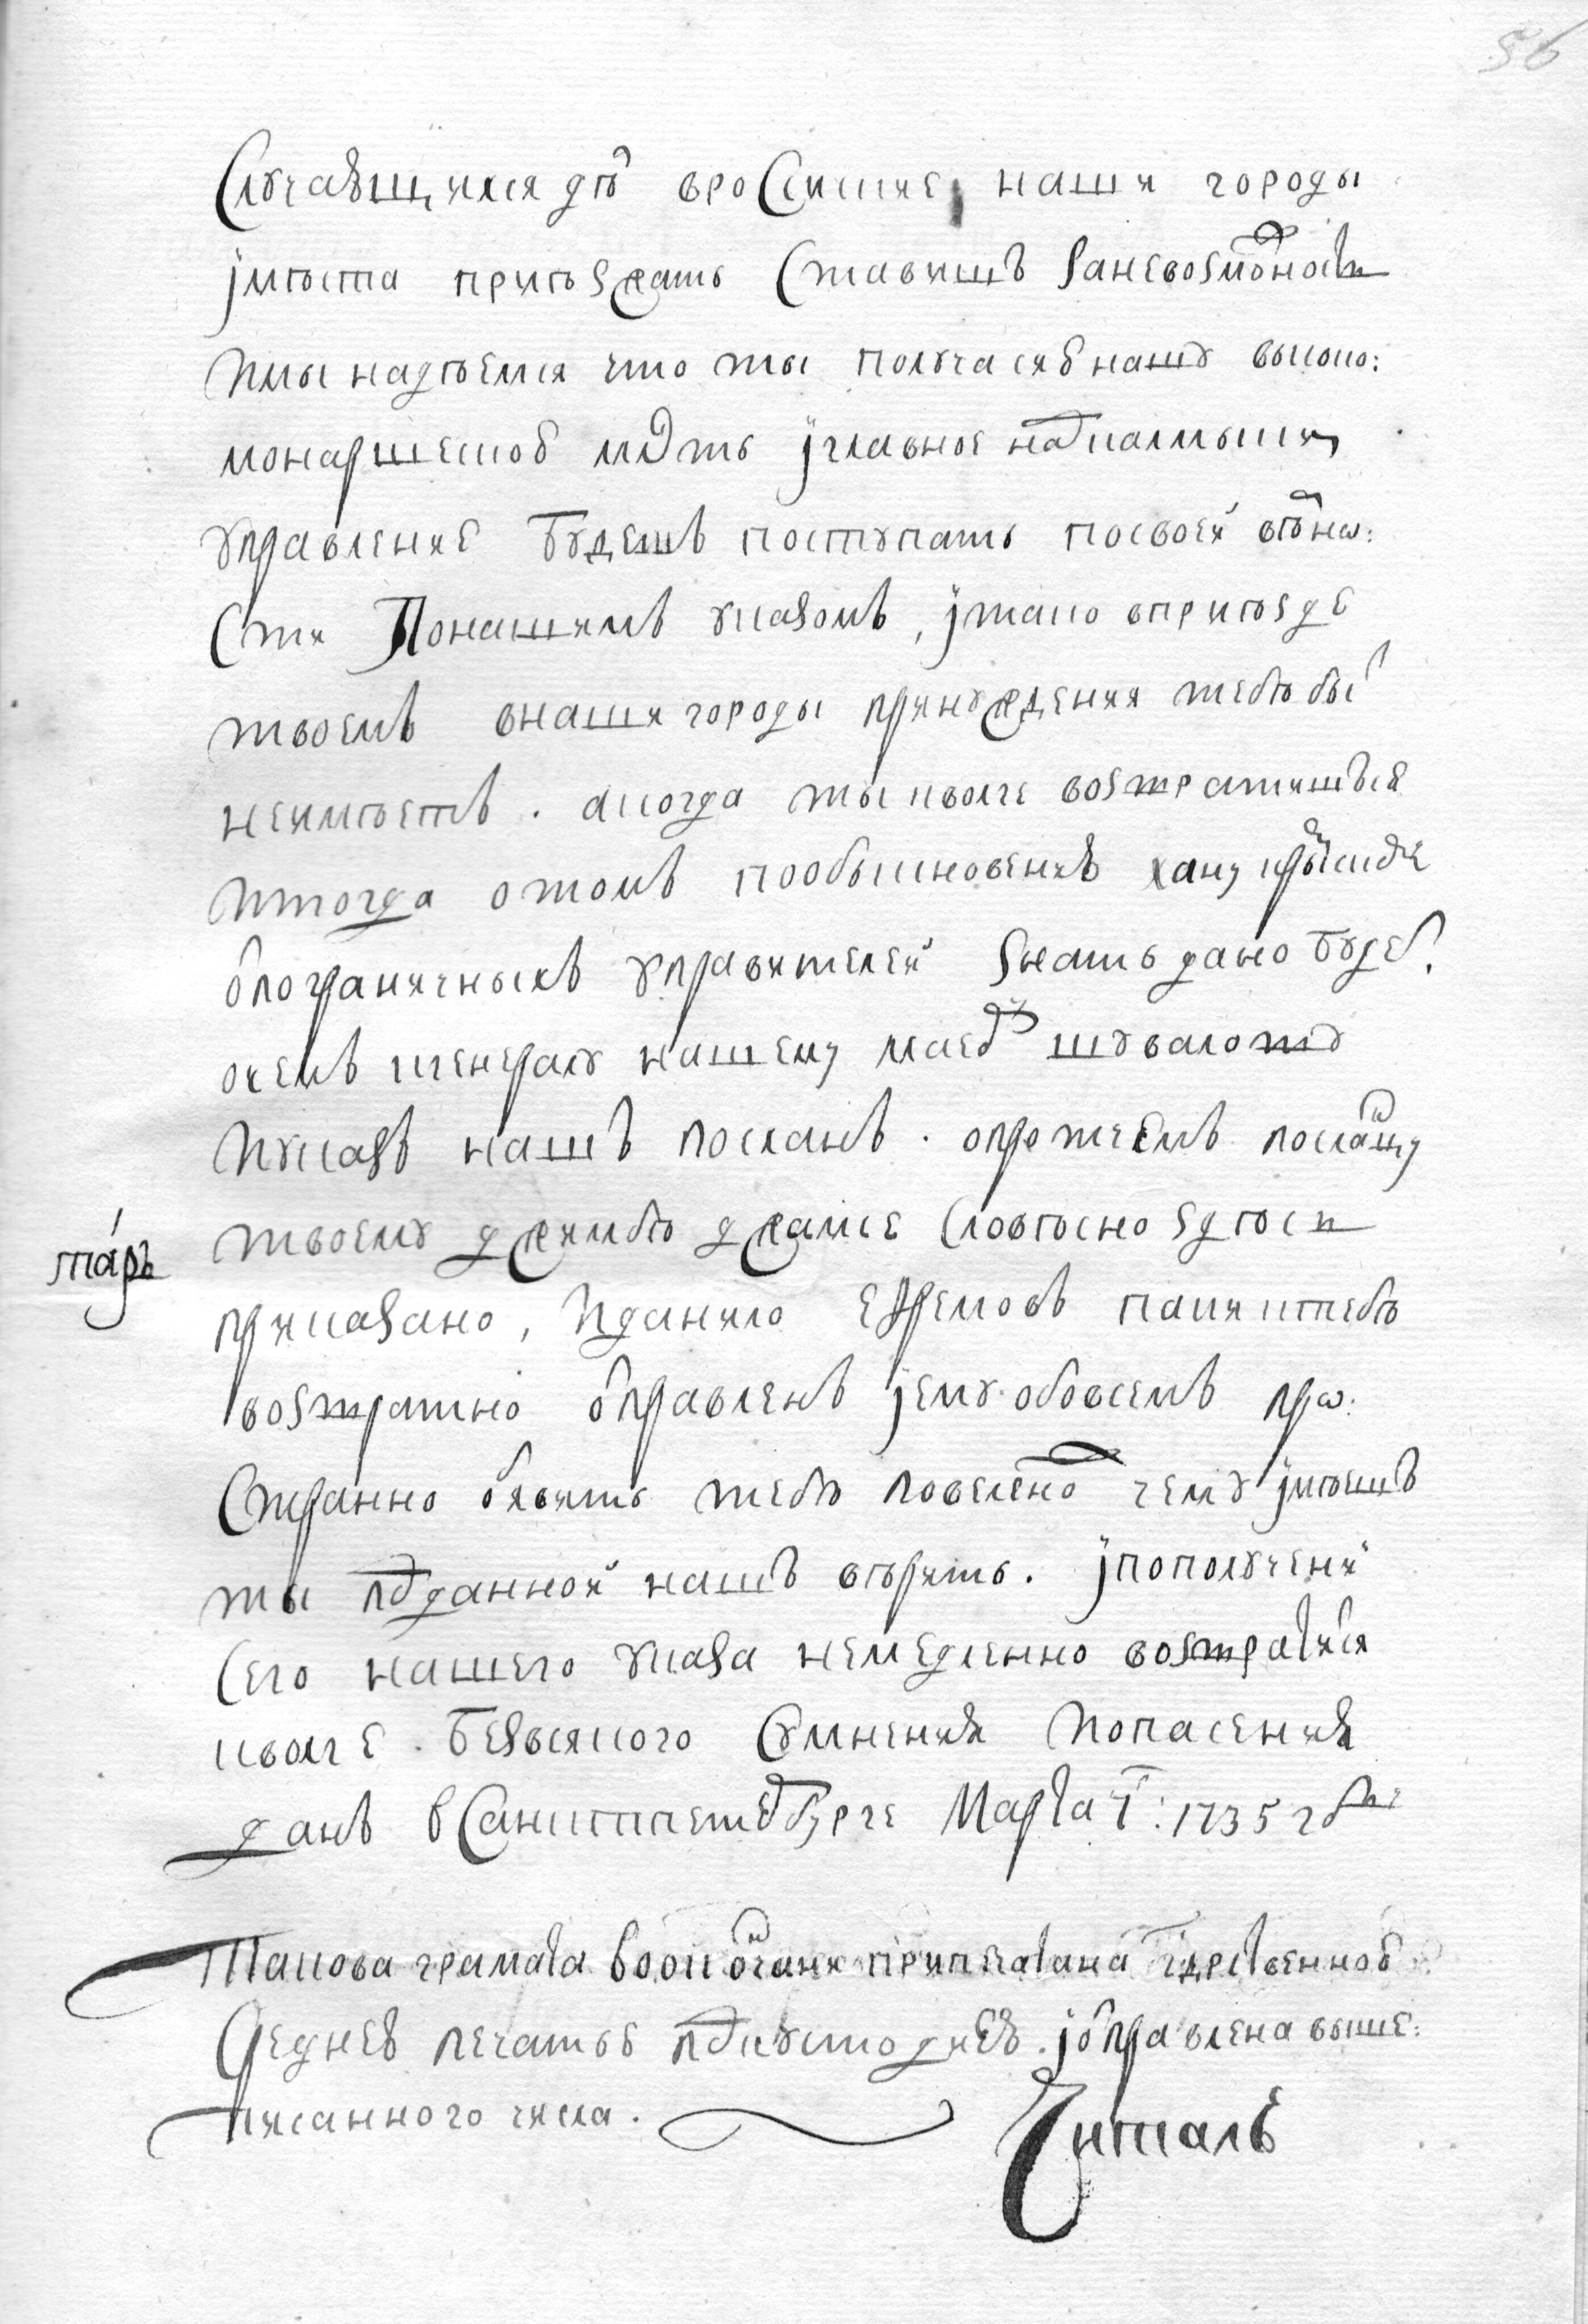 56
Случающихся дѣл вроссиские наши городы
імѣста приѣзжать ставишъ заневозможность
имы надѣемся что ты получа сию нашу высоко:
монаршескую млсть іглавное надкалмыки
управление будешъ поступать посвоей вѣрно:
сти Понашимъ указомъ, ітако вприѣзде
твоемъ внаши городы принуждения тебѣ быть
неимѣетъ. акогда ты кволге возвратишься
итогда отомъ пообыкновению хану крымскому
отпограничныхъ управителей знать дано будет.
очемъ кгенералу нашему маеору шувалову
иуказъ нашъ посланъ. опротчемъ посланцу
твоему джимбѣ джамсе словѣсно здѣси
тарь
приказано, иданило Ефремовъ паки ктебѣ
возвратно отправленъ іему обовсемъ про:
странно объявить тебѣ повелено чему імѣешъ
ты подданной нашъ вѣрить. іпополучени
сего нашего указа немедленно возвратися
кволге. безвсякого сумнения иопасения
данъ всанктпетербурге Марта 1735 году
Такова грамата воокончани припечатана гдрственною
среднею печатью подкустодиею. іотправлена выше:
писанного числа.
Читалъ